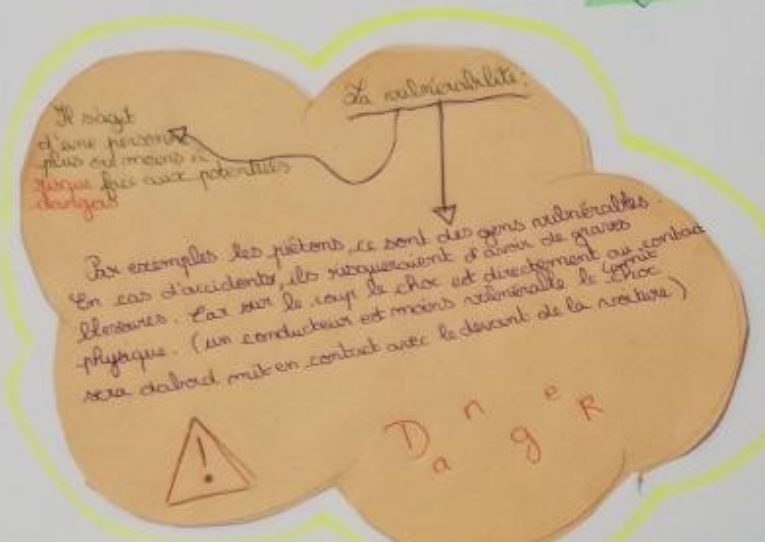 La vulnérabilité:
Il s'agit
d'une personne
plus ou moins à
risque face aux potentiels
dangers
Par exemples les piétons, ce sont des gens vulnérables.
En cas d'accidents, ils risqueraient d'avoir de graves
blessures. Car sur le coup le choc est directement au contact
physique. (un conducteur est moins vulnérable le choc
sera dabord mit en contact avec le devant de la voiture)
!
DangeR